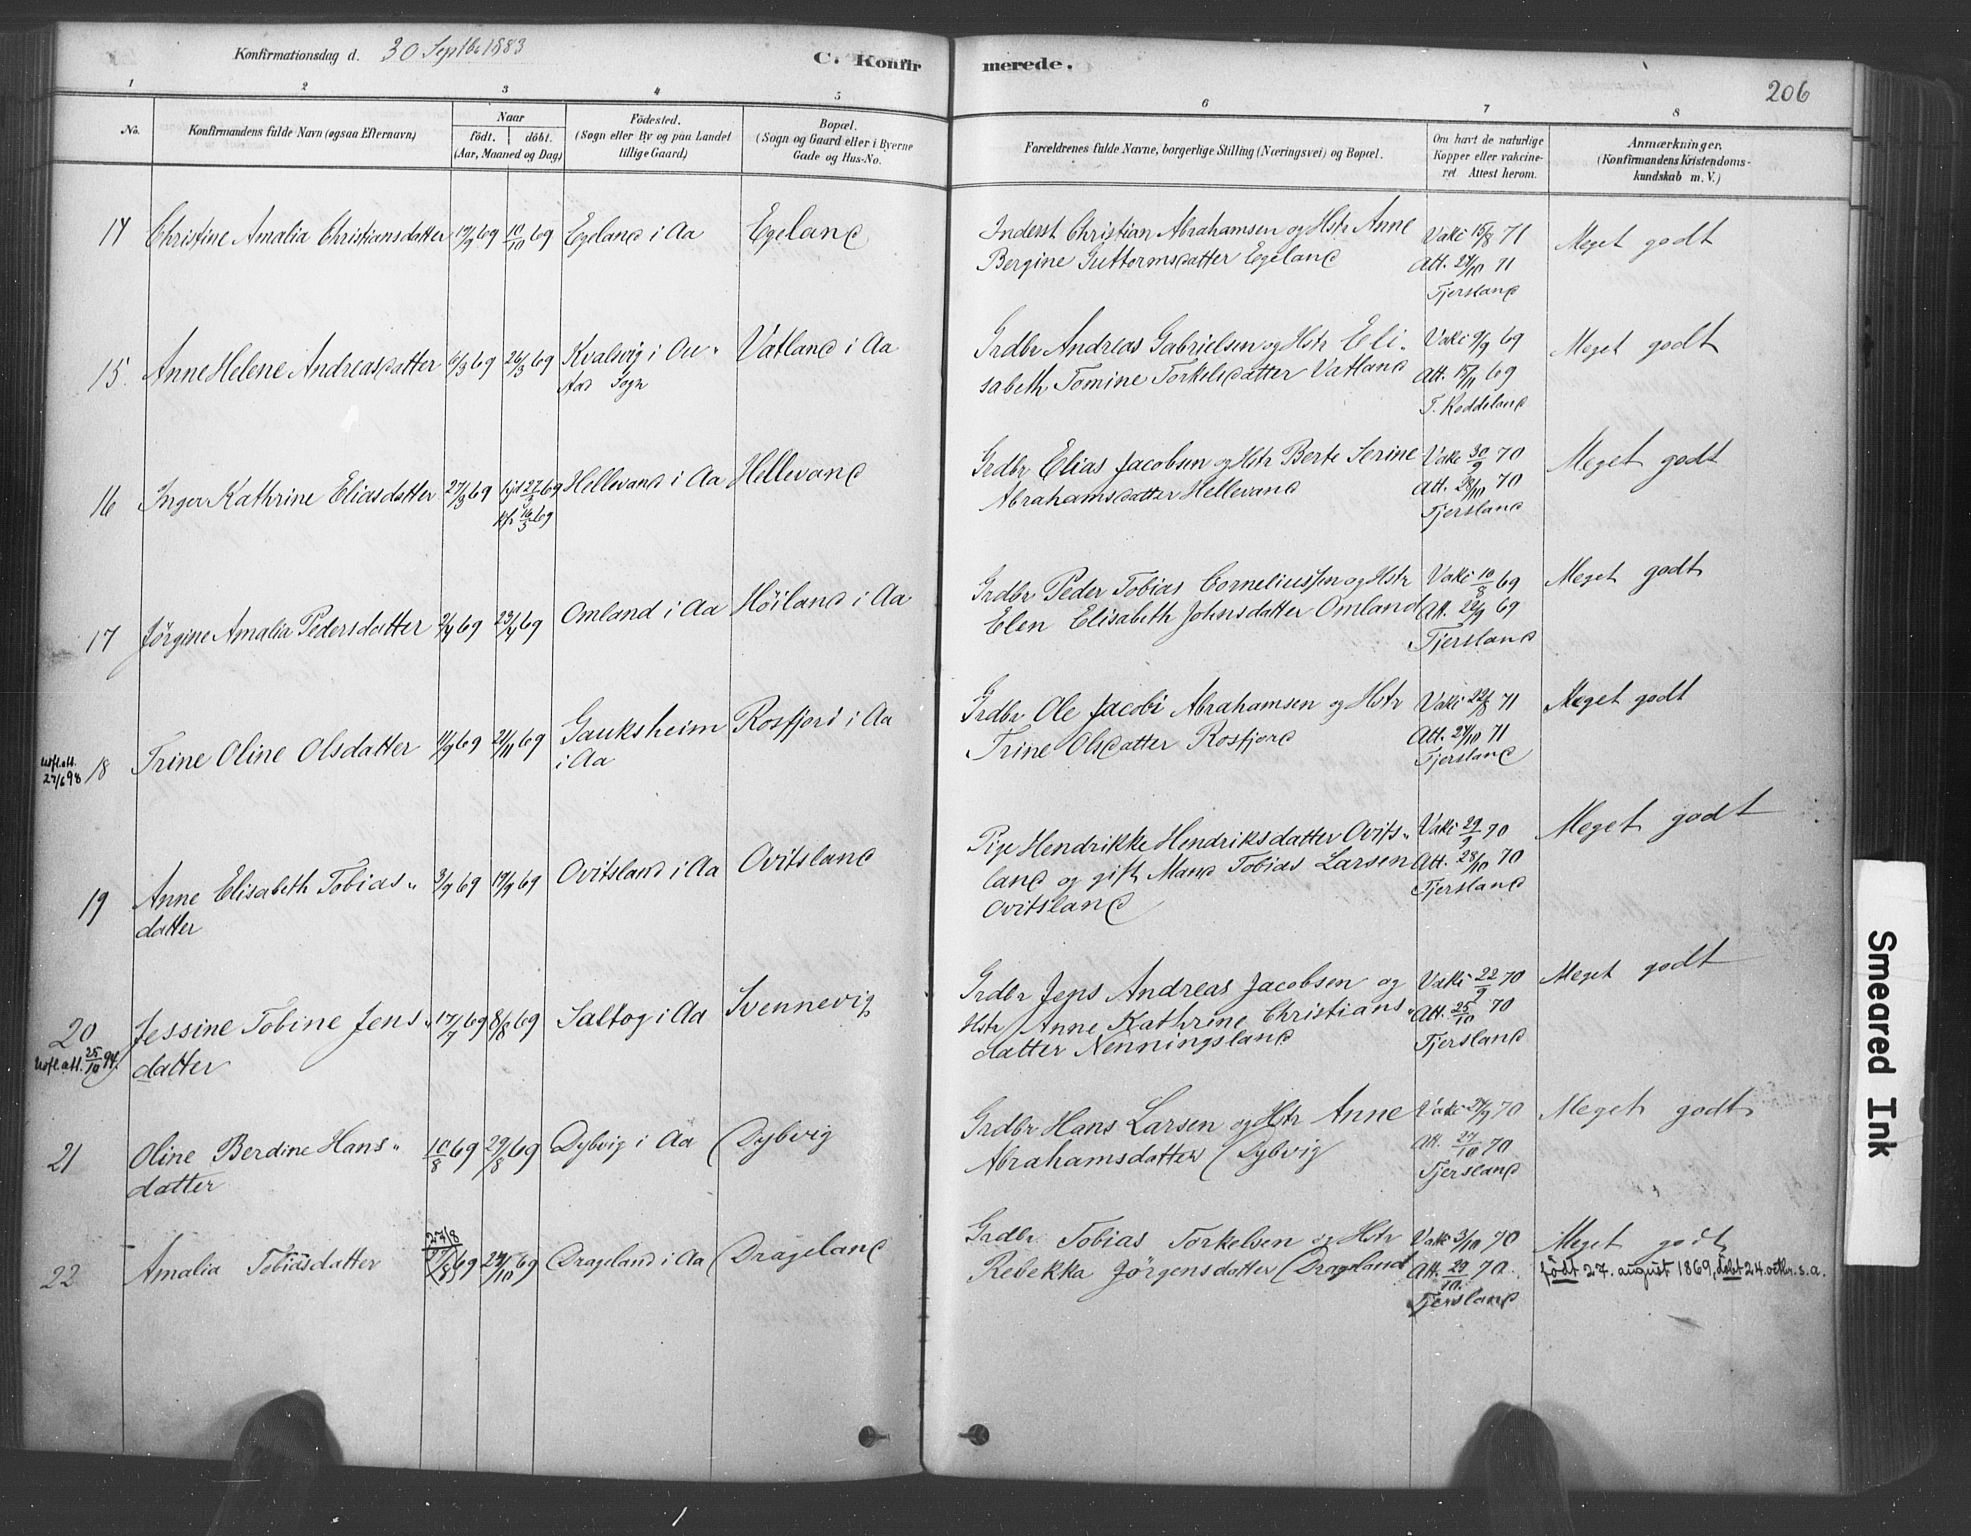 Konfirmationsdag d. 30 Septbr 1883
C. Konfirmerede.
206
1 2 3 4 5 6 7 8
No.
Konfirmandens fulde Navn (ogsaa Efternavn)
Naar
födt. döbt.
(Aar, Maaned og Dag)
Födested.
(Sogn eller By og paa Landet
tillige Gaard)
Bopæl.
(Sogn og Gaard eller i Byerne
Gade og Hus-No.
Forældrenes fulde Navne, borgerlige Stilling (Næringsvei) og Bopæl.
Om havt de naturlige
Kopper eller vakcine-
ret Attest herom.
Anmærkninger.
(Konfirmandens Kristendoms-
kundskab m. V.)
14 Christine Amalia Christiansdatter 17/9 69 10/10 69 Egeland i Aa Egeland
Inderst Christian Abrahamsen og Hstr Anne
Bergine Guttormsdatter Egeland
Vakc 15/8 71
Att. 24/10 71
Tjersland
Meget godt
15. Anne Helene Andreasdatter 6/3 69 26/3 69 Kvalsvig i Au„
Aas Sogn
Vatland i Aa
Grdbr Andreas Gabrielsen og Hstr Eli-
sabeth Tomine Torkelsdatter Vatland
Vakc 9/9 69
Att. 15/11 69
T. Reddeland
Meget godt
16 Inger Kathrine Eliasdatter 27/3 69 27/3 69
16/3 69
Hellevand i Aa Hellevand
Grdbr Elias Jacobsen og Hstr Berte Serine
Abrahamsdatter Hellevand
Vakc 30/9 70
Att. 28/10 70
Tjersland
Meget godt
17 Jörgine Amalia Pedersdatter 2/4 69 23/4 69 Omland i Aa Höiland i Aa
Grdbr Peder Tobias Corneliussen og Hstr
Elen Elisabeth Johnsdatter Omland
Vakc 10/8 69
Att. 22/9 69
Tjersland
Meget godt
Udfl.att.
27/6 98
18 Trine Oline Olsdatter 11/9 69 21/11 69 Gauksheim
i Aa
Rosfjord i Aa
Grdbr Ole Jacobi Abrahamsen og Hstr
Trine Olsdatter Rosfjord
Vakc 22/8 71
Att. 24/10 71
Tjersland
Meget godt
19 Anne Elisabeth Tobias„
datter
3/9 69 19/9 69 Ovitsland i Aa Ovitsland
Pige Hendrikke Hendriksdatter Ovits„
land og gift Mand Tobias Larsen
Ovitsland
Vakc 29/9 70
Att. 28/10 70
Tjersland
Meget godt
20 Jessine Tobine Jens„
datter
Udfl.att. 25/10 94.
17/7 69 8/8 69 Saltog i Aa Svennevig
Grdbr Jens Andreas Jacobsen og
Hstr Anne Kathrine Christians„
datter Nenningsland
Vakc 22/9 70
Att. 25/10 70
Tjersland
Meget godt
21 Oline Berdine Hans„
datter
10/8 69 29/8 69 Dybvig i Aa Dybvig
Grdbr Hans Larsen og Hstr Anne
Abrahamsdatter Dybvig
Vakc 24/9 70
Att. 27/10 70
Tjersland
Meget godt
22 Amalia Tobiasdatter 27/8
27/8 69 24/10 69 Drageland i Aa Drageland
Grdbr Tobias Torkelsen og Hstr
Rebekka Jörgensdatter Drageland
Vakc 3/10 70
Att. 29/10 70.
Tjersland
Meget godt
födt 27. august 1869, döbt 24. octbr. s. a.
Smeared Ink